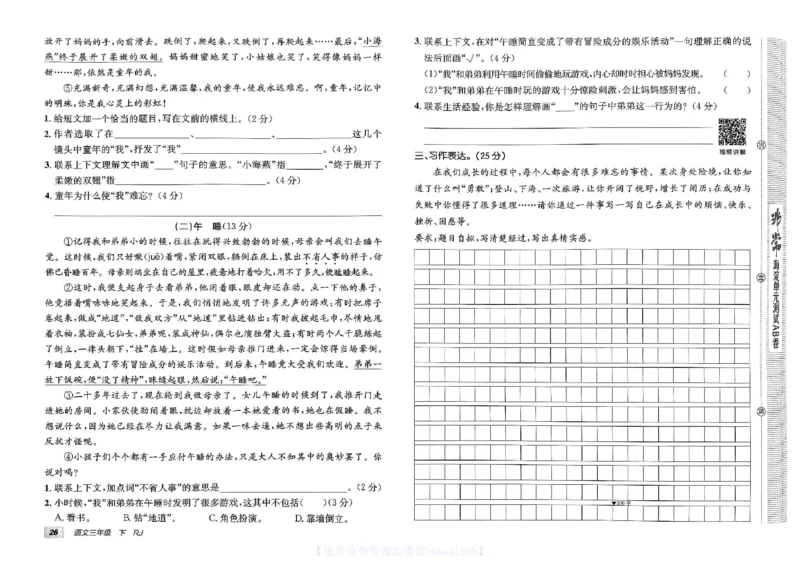 放开了妈妈的手,向前滑去。跌倒了,爬起来,又跌倒了,再爬起来……最后,“小海
燕”终于展开了柔嫩的双翅。妈妈甜蜜地笑了,小姑娘也笑了,笑得像妈妈一样
甜……那,依然是童年的我。
⑤充满新奇,充满幻想,充满温馨,我的童年,使我永远难忘。啊,童年,记忆中
的明珠,你是我心灵上的彩虹!
1. 给短文加一个恰当的题目,写在文前的横线上。(2分)
2. 作者选取了在____________、____________、____________这几个
镜头中童年的“我”,抒发了“我”____________。(4分)
3. 联系上下文理解文中画“____”句子的意思。“小海燕”指________,“终于展开了
柔嫩的双翅”指____________。(4分)
4. 童年为什么使“我”难忘?(4分)
(二)午 睡(13分)
①记得我和弟弟小的时候,往往在玩得兴致勃勃的时候,母亲会叫我们去睡午
觉。这时候,我们只好噘(juē)着嘴,紧闭双眼,躺倒在床上,装出不省人事的样子,仿
佛已昏睡百年。母亲则端坐在自己的屋里,疲惫地打着哈欠,用不了多久,便瞌睡起来。
②这时,我便支起身子去看弟弟,他闭着眼,眼皮却还在动。点一下他的鼻子,
他竟捂着嘴咯咯地笑起来。于是,我们悄悄地发明了许多无声的游戏;有时把席子
卷起来,做成“地道”,“敌我双方”从“地道”里钻进钻出;有时我披起毛巾,尽情地甩
着衣袖,装扮成七仙女,弟弟呢,装成神仙,偶尔也演独臂大盗;有时两个人干脆练起
了倒立,一律头朝下,“挂”在墙上。这时假如母亲推门进来,一定会惊得当场晕倒。
午睡简直变成了带有冒险成分的娱乐活动。到后来,午睡竟大受我们欢迎。弟弟一
放下饭碗,便“没了精神”,眯缝起眼,然后说:“午睡吧。”
③二十多年过去了,现在轮到我做母亲了。女儿午睡的时候到了,我推开门走
进她的房间。小家伙使劲闭着眼,枕边却放着一本她爱看的书,她也在假睡。我不
想说什么,因为她已经在尽力让我满意。如果一味去逼,她不想出些高明的点子来
反抗才怪呢。
④小孩子们个个都有一手应付午睡的办法,只是大人不知其中的奥妙罢了。你
说对吗?
1. 联系上下文,加点词“不省人事”的意思是____________。(2分)
2. 小时候,“我”和弟弟在午睡时发明了很多游戏,这其中不包括( )(3分)
A. 看书。 B. 钻“地道”。 C. 角色扮演。 D. 靠墙倒立。
26 语文三年级 下 RJ
3. 联系上下文,在对“午睡简直变成了带有冒险成分的娱乐活动”一句理解正确的说
法后面画“√”。(4分)
(1)“我”和弟弟利用午睡时间偷偷地玩游戏,内心却时时担心被妈妈发现。 ( )
(2)“我”和弟弟在午睡时玩的游戏十分惊险刺激,会让妈妈感到害怕。 ( )
4. 联系生活经验,你是怎样理解画“____”的句子中弟弟这一行为的?(4分)
视频讲解
三、习作表达。(25分)
在我们成长的过程中,每个人都会有很多难忘的事情。某次身处险境,让你知
道了什么叫“勇敢”;登山、下海、一次旅游,让你开阔了视野,增长了阅历;在成功与
失败中你懂得了很多道理……请你通过一件事写一写自己在成长中的烦恼、快乐、
挫折、困惑等。
要求:题目自拟,写清楚经过,写出真情实感。
▼300字
海淀单元测试AB卷